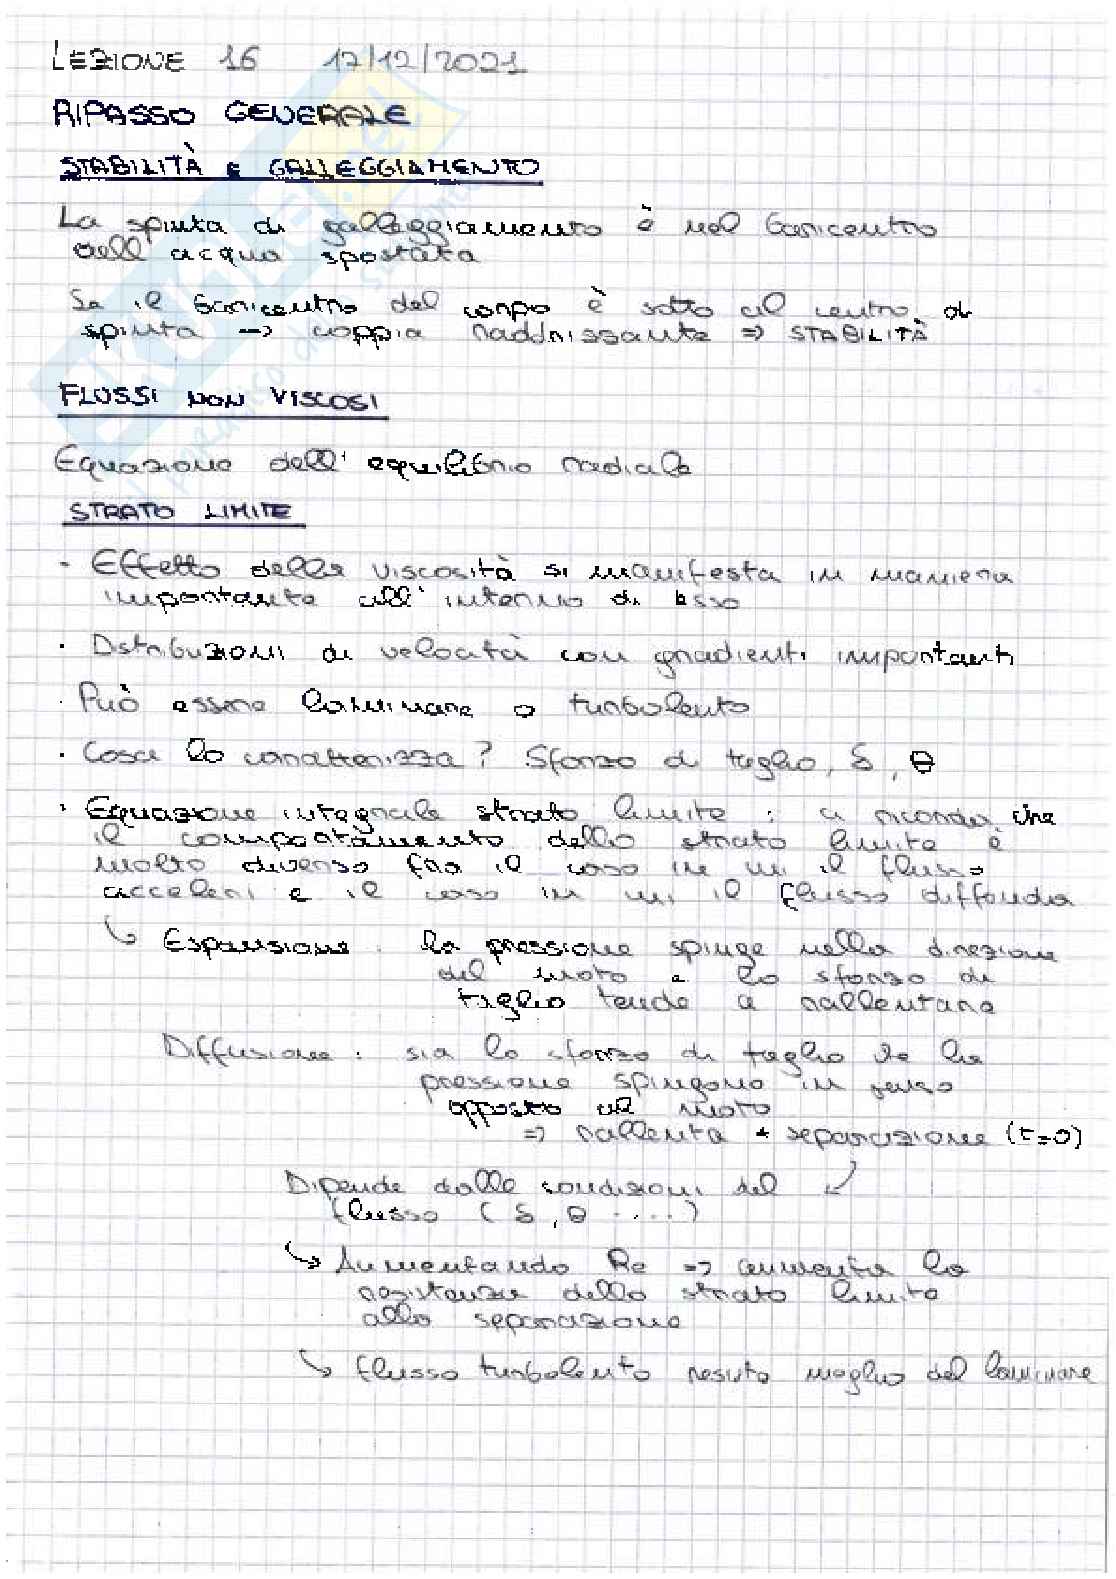 LEZIONE 16 17/12/2021
RIPASSO GENERALE
STABILITÀ E GALLEGGIAMENTO
La spinta di galleggiamento è nel baricentro
dell'acqua spostata
Se il baricentro del corpo è sotto al centro di
spinta → coppia raddrizzante ⇒ STABILITÀ
FLUSSI NON VISCOSI
Equazione dell'equilibrio radiale
STRATO LIMITE
- Effetto della viscosità si manifesta in maniera
importante all'interno di esso
· Distribuzioni di velocità con gradienti importanti
· Può essere laminare o turbolento
· Cosa lo caratterizza? Sforzo di taglio, δ, θ
· Equazione integrale strato limite : ci ricorda che
il comportamento dello strato limite è
molto diverso fra il caso in cui il flusso
acceleri e il caso in cui il flusso diffonda
↳ Espansione : la pressione spinge nella direzione
del moto e lo sforzo di
taglio tende a rallentare
Diffusione : sia lo sforzo di taglio che la
pressione spingono in senso
opposto al moto
⇒ rallenta + separazione (τ=0)
Dipende dalle condizioni del
flusso (δ, θ ....)
↳ Aumentando Re ⇒ aumenta la
resistenza dello strato limite
alla separazione
↳ flusso turbolento resiste meglio del laminare